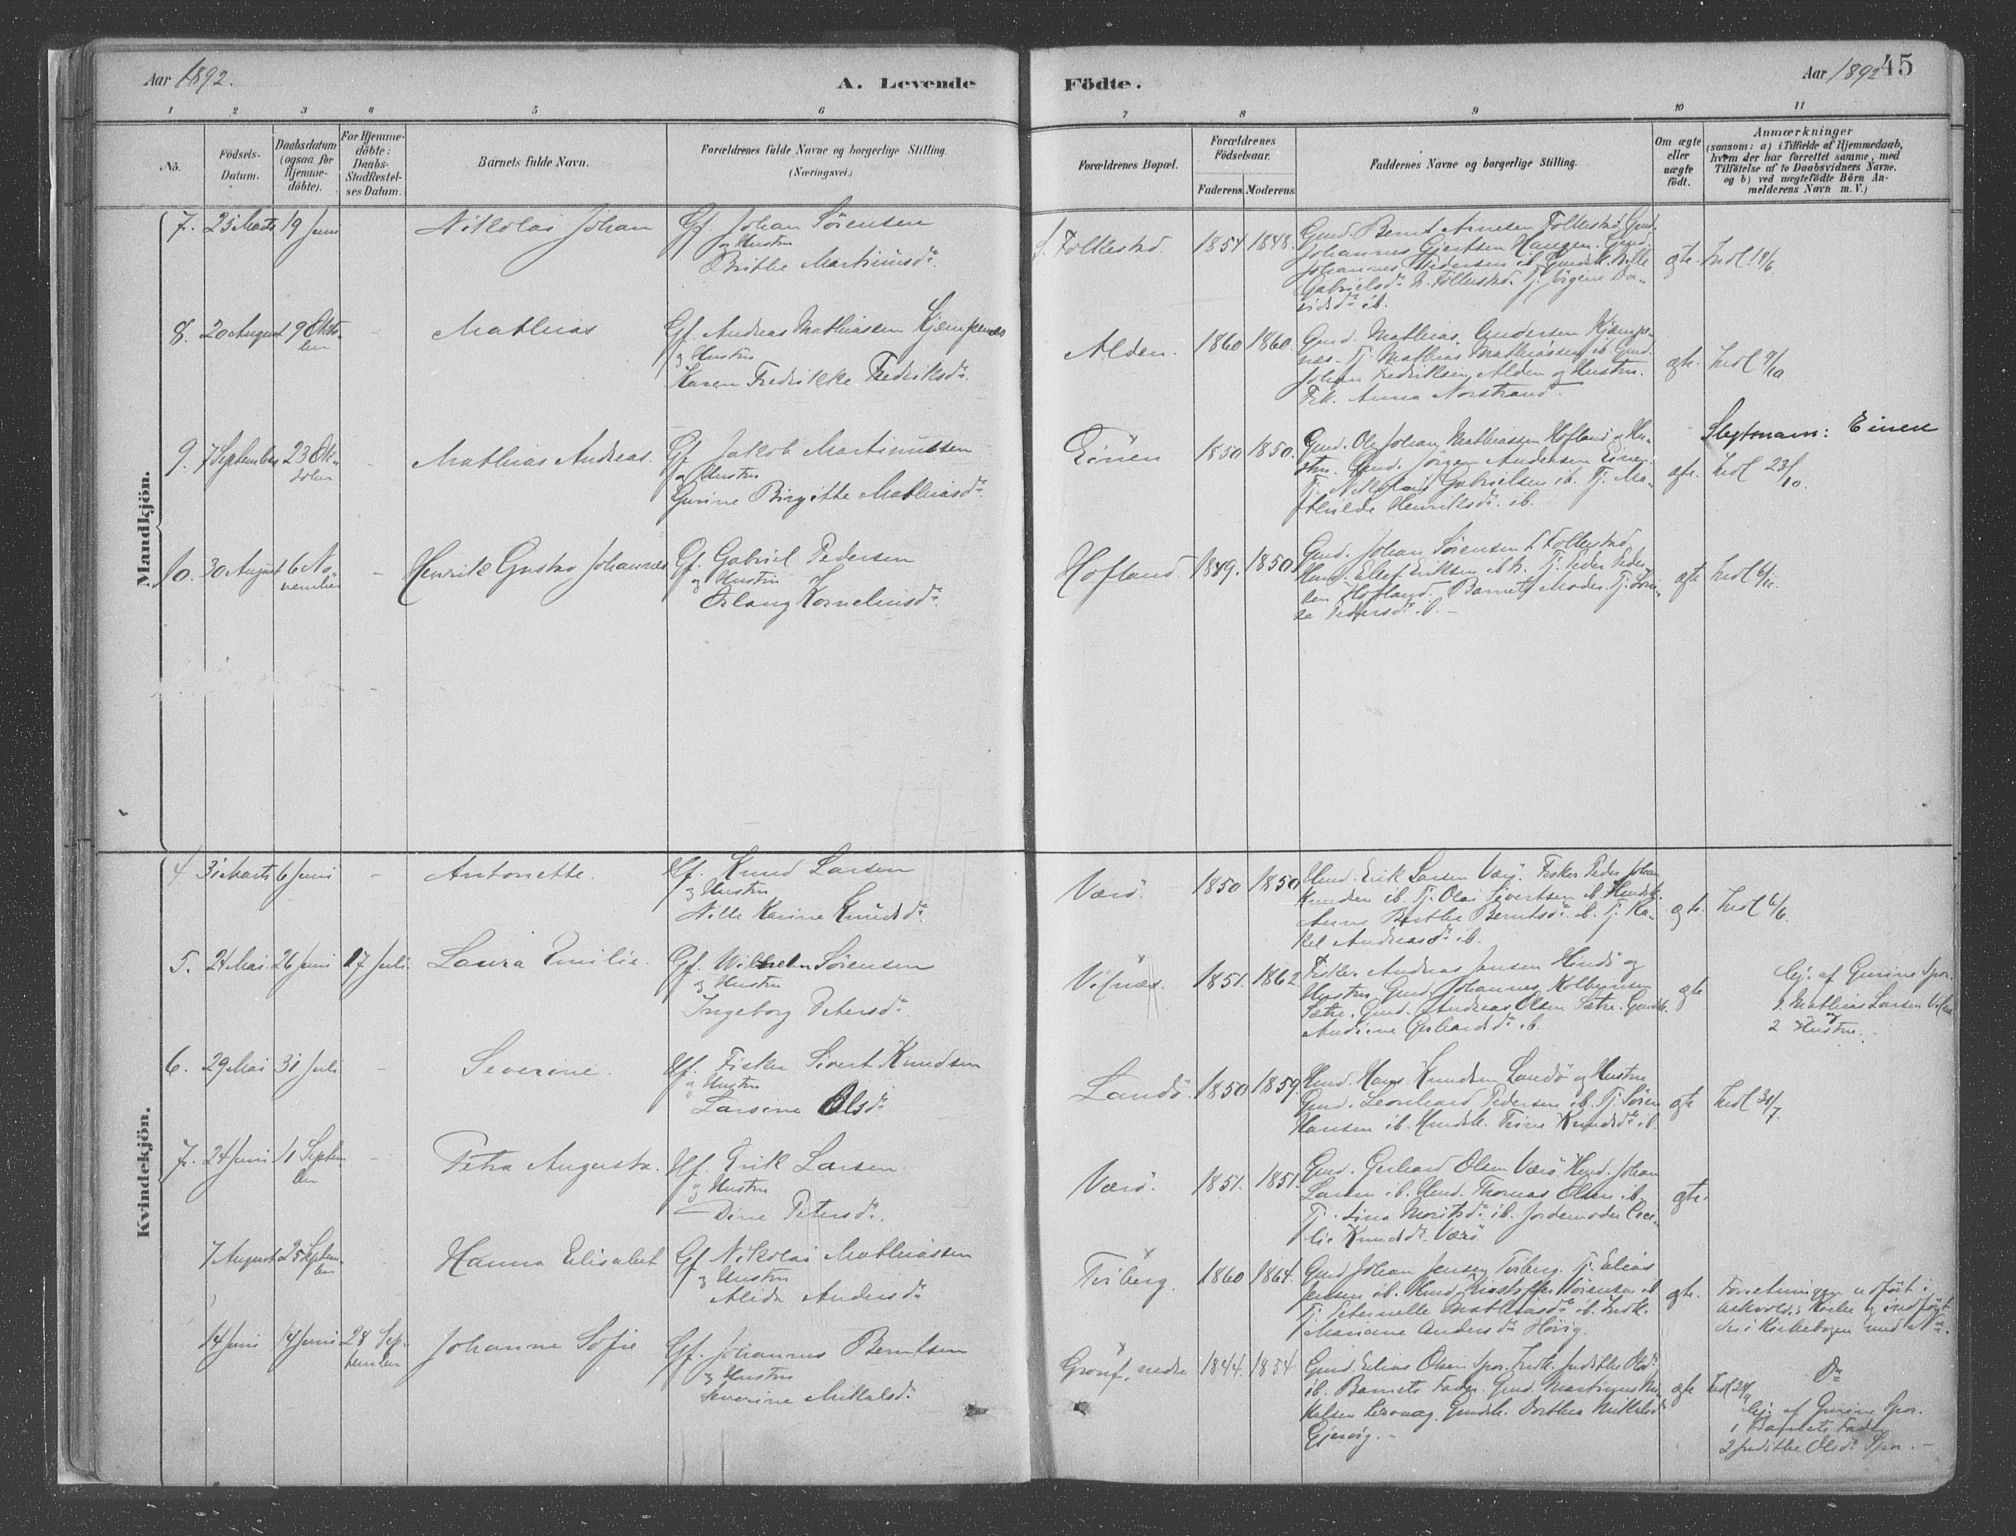 Aar 1892.
A. Levende
Födte.
Aar 1892
45
1 2 3 4 5 6 7 8 9 10 11
No.
Födsels-Datum.
Daabsdatum (ogsaa for Hjemme-döbte).
For Hjemme-döbte: Daabs-Stadfæstel-ses Datum.
Barnets fulde Navn.
Forældrenes fulde Navne og borgerlige Stilling. (Næringsvei.)
Forældrenes Bopæl.
Forældrenes Födselsaar.
Faderens. Moderens.
Faddernes Navne og borgerlige Stilling.
Om ægte eller uægte födt.
Anmærkninger
(saasom: a) i Tilfælde af Hjemmedaab,
hvem der har forrettet samme, med
Tilföielse af to Daabsvidners Navne.
og b) ved uægtefödte Börn An-
melderens Navn m. V.)
Mandkjön.
7. 25 Marts 19 Juni Nikolai Johan Gf. Johan Sörensen
og Hustru
Brithe Martinusdr.
S. Folkestad. 1854 1848.
Gmd. Bernt Arnesen Folkestad. Gmd.
Johannes Gjertsen Haugen.
Johannes Pedersen ib.
Gabrielsdr. N. Folkestad. Tj. Jörgine Da-
vidsdr. ib.
ægte. Indl 19/6.
8. 20 August 9 Okto-
ber
- Mathias Gf. Andreas Mathiassen Kjempenes
og Hustru
Karen Fredrikke Fredriksdr.
Alden. 1860 1860.
Gmd. Mathias Andersen Kjemp-
næs. Tj. Mathias Mathiassen ib. Gmd.
Johan Fredriksen Alden og Hustru.
Frk. Anna Norstrand.
ægte. Indl 9/10
9. 7 September 23 Ok-
tober
Mathias Andreas. Gf. Jakob Martinussen
og Hustru
Gurine Birgitte Mathiasdr.
Einen 1850 1850.
Gmd. Ole Johan Mathiassen Hofland og Hu-
stru. Gmd. Jörgen Andersen Einen.
Tj. Nikolai Gabrielsen ib. Tj. Ma-
thilde Henriksdr. ib.
ægte.
Slegtnavn: Einen
Indl 23/10.
10. 30 August 6 No-
vember
- Henrik Gustav Johannes Gf. Gabriel Pedersen
og Hustru
Oslaug Korneliusdr.
Hofland. 1849. 1850.
Gmd. Johan Sörensen S. Folkestad
Ellef Eriksen ib. Tj. Peder Peder-
sen Hofland. Barnets Moder. Tj.
Pedersdr. ib. -
ægte Indl 6/11.
Kvindekjön.
4 31 Marts 6 Juni - Antonette. Hf. Knud Larsen
og Hustru
Nille Karine Knudsdr.
Værö. 1850 1850
Hmd. Erik Larsen Værö. Fisker Peder Johan
Knudsen ib. Tj. Olai Sivertsen ib. Hmdsk.
Anne Berthe Berntsdr. ib. Tj. Ra-
kel Andreasdr. ib.
ægte. Indl 6/6.
5. 24 Mai 26 Juni 17 Juli. Laura Emilie. Gf. Wilhelm Sörensen
og Hustru
Ingeborg Petersdr.
Vilnæs. 1851. 1862
Fisker Andreas Jensen Hendö og
Hustru. Gmd. Johannes Kolbeinsen
Sætre. Gmd. Andreas Olsen Sætre. Gmdsk.
Andrine Gerhardsdr. ib.
ægte
Hj. af Gurine Spor.
1. Mathias Larsen Vilnæs
og
2 Hustru.
6. 29 Mai 31 Juli - Severine. Hf. Fisker Sivert Knudsen
og Hustru
Larsine Olsdr.
Landö. 1850 1859.
Hmd. Hans Knudsen Landö og Hustru
Gmd. Leonhard Pedersen ib. Tj. Sören
Hansen ib. Hmdsk. Trine Knudsdr. ib.
ægte Indl 31/7
7. 24 Juni 11 Septem-
ber
- Petra Augusta. Hf. Erik Larsen
og Hustru
Dine Petersdr.
Værö. 1851. 1851.
Gmd. Gerhard Olsen Værö. Hmd. Johan
Larsen ib. Hmd. Thomas Olsen ib.
Tj. Lina Moritsdr. ib. Jordemoder Ceci-
lie Knudsdr. Værö
ægte.
7 August 25 Septem-
ber
Hanna Elisabet Gf. Nikolai Mathiassen
og Hustru
Alida Andersdr.
Tviberg. 1860 1864.
Gmd. Johan Jensen Tviberg. Tj. Elias
Jensen ib. Hmd. Kristoffer Sörensen ib
Tj. Mathiasdr. ib. Indk.
Mariane Andersdr. Hövig.
ægte.
Forretningen udfört i
Askvolds Kirke og indfört
der i Kirkebogen med No.
14 Juni 14 Juni 28 Sep-
tember
Johanne Sofie Gf. Johannes Berntsen
og Hustru
Severine Mikkelsdr.
nedre 1844. 1854
Gmd. Elias Olsen Spor. Indk. Judithe Olsdr.
ib. Barnets Fader. Gmd. Martinus Mi-
kelsen Leirvaag. Gmdsk. Dorthea Mikkelsdr.
Gjervig. -
ægte
Do
Hj. af Gurine Spor.
1 Barnets Fader
2 Judithe Olsdr. Spor. -